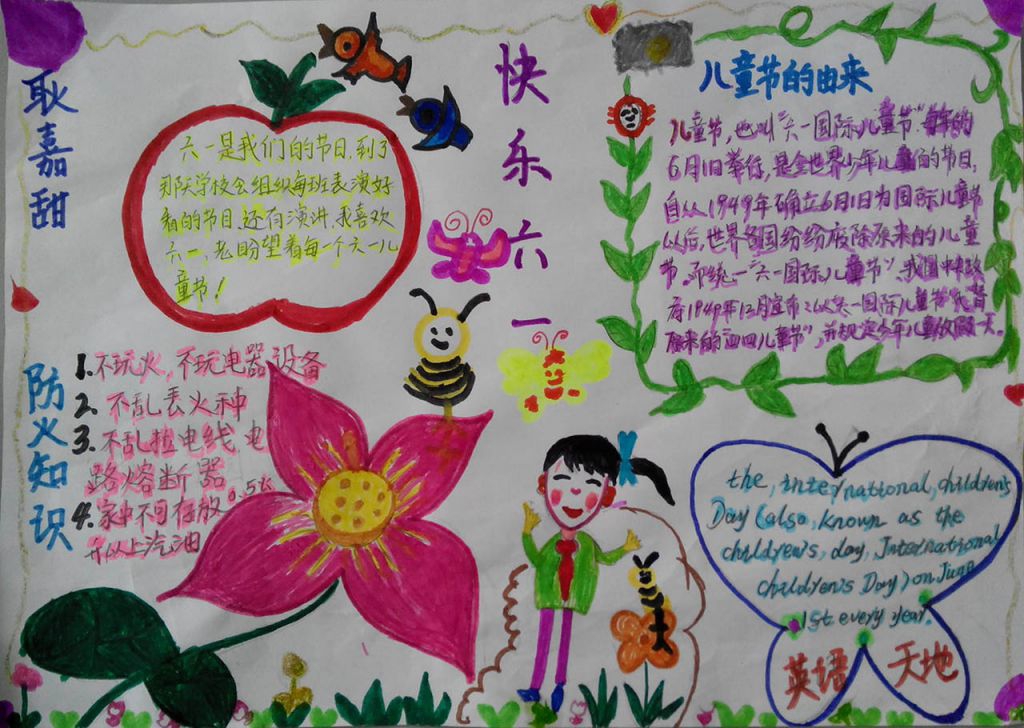 耿嘉甜
快乐六一
六一是我们的节日,到了
那天学校会组织每班表演好
看的节目,还有演讲,我喜欢
六一,老盼望着每一个六一儿
童节!
儿童节的由来
儿童节,也叫“六一国际儿童节”每年的
6月1日举行,是全世界少年儿童们的节日,
自从1949年确立6月1日为国际儿童节
以后,世界各国纷纷废除原来的儿童
节,而统一“六一国际儿童节”,我国中央政
府1949年12月宣布:以六一国际儿童节代替
原来的“四四儿童节”,并规定今年儿童放假一天。
防火知识
1.不玩火,不玩电器设备
2.不乱丢火种
3.不乱拉电线,电
路熔断器
4.家中不可存放0.5kg
升以上汽油
the,international,children's
Day(also,known as the
children's,day,International
children's Day)on June
1st every year.
英语 天地